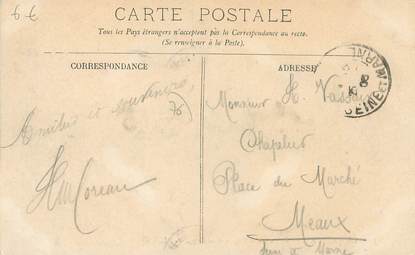 6 €
CARTE POSTALE
Tous les Pays étrangers n'acceptent pas la Correspondance au recto.
(Se renseigner à la Poste).
CORRESPONDANCE
ADRESSE
Amitiés et souvenirs
76
Monsieur H.
Chapelier
Place du Marché
Meaux
Seine & Marne
SEINE ET MARNE